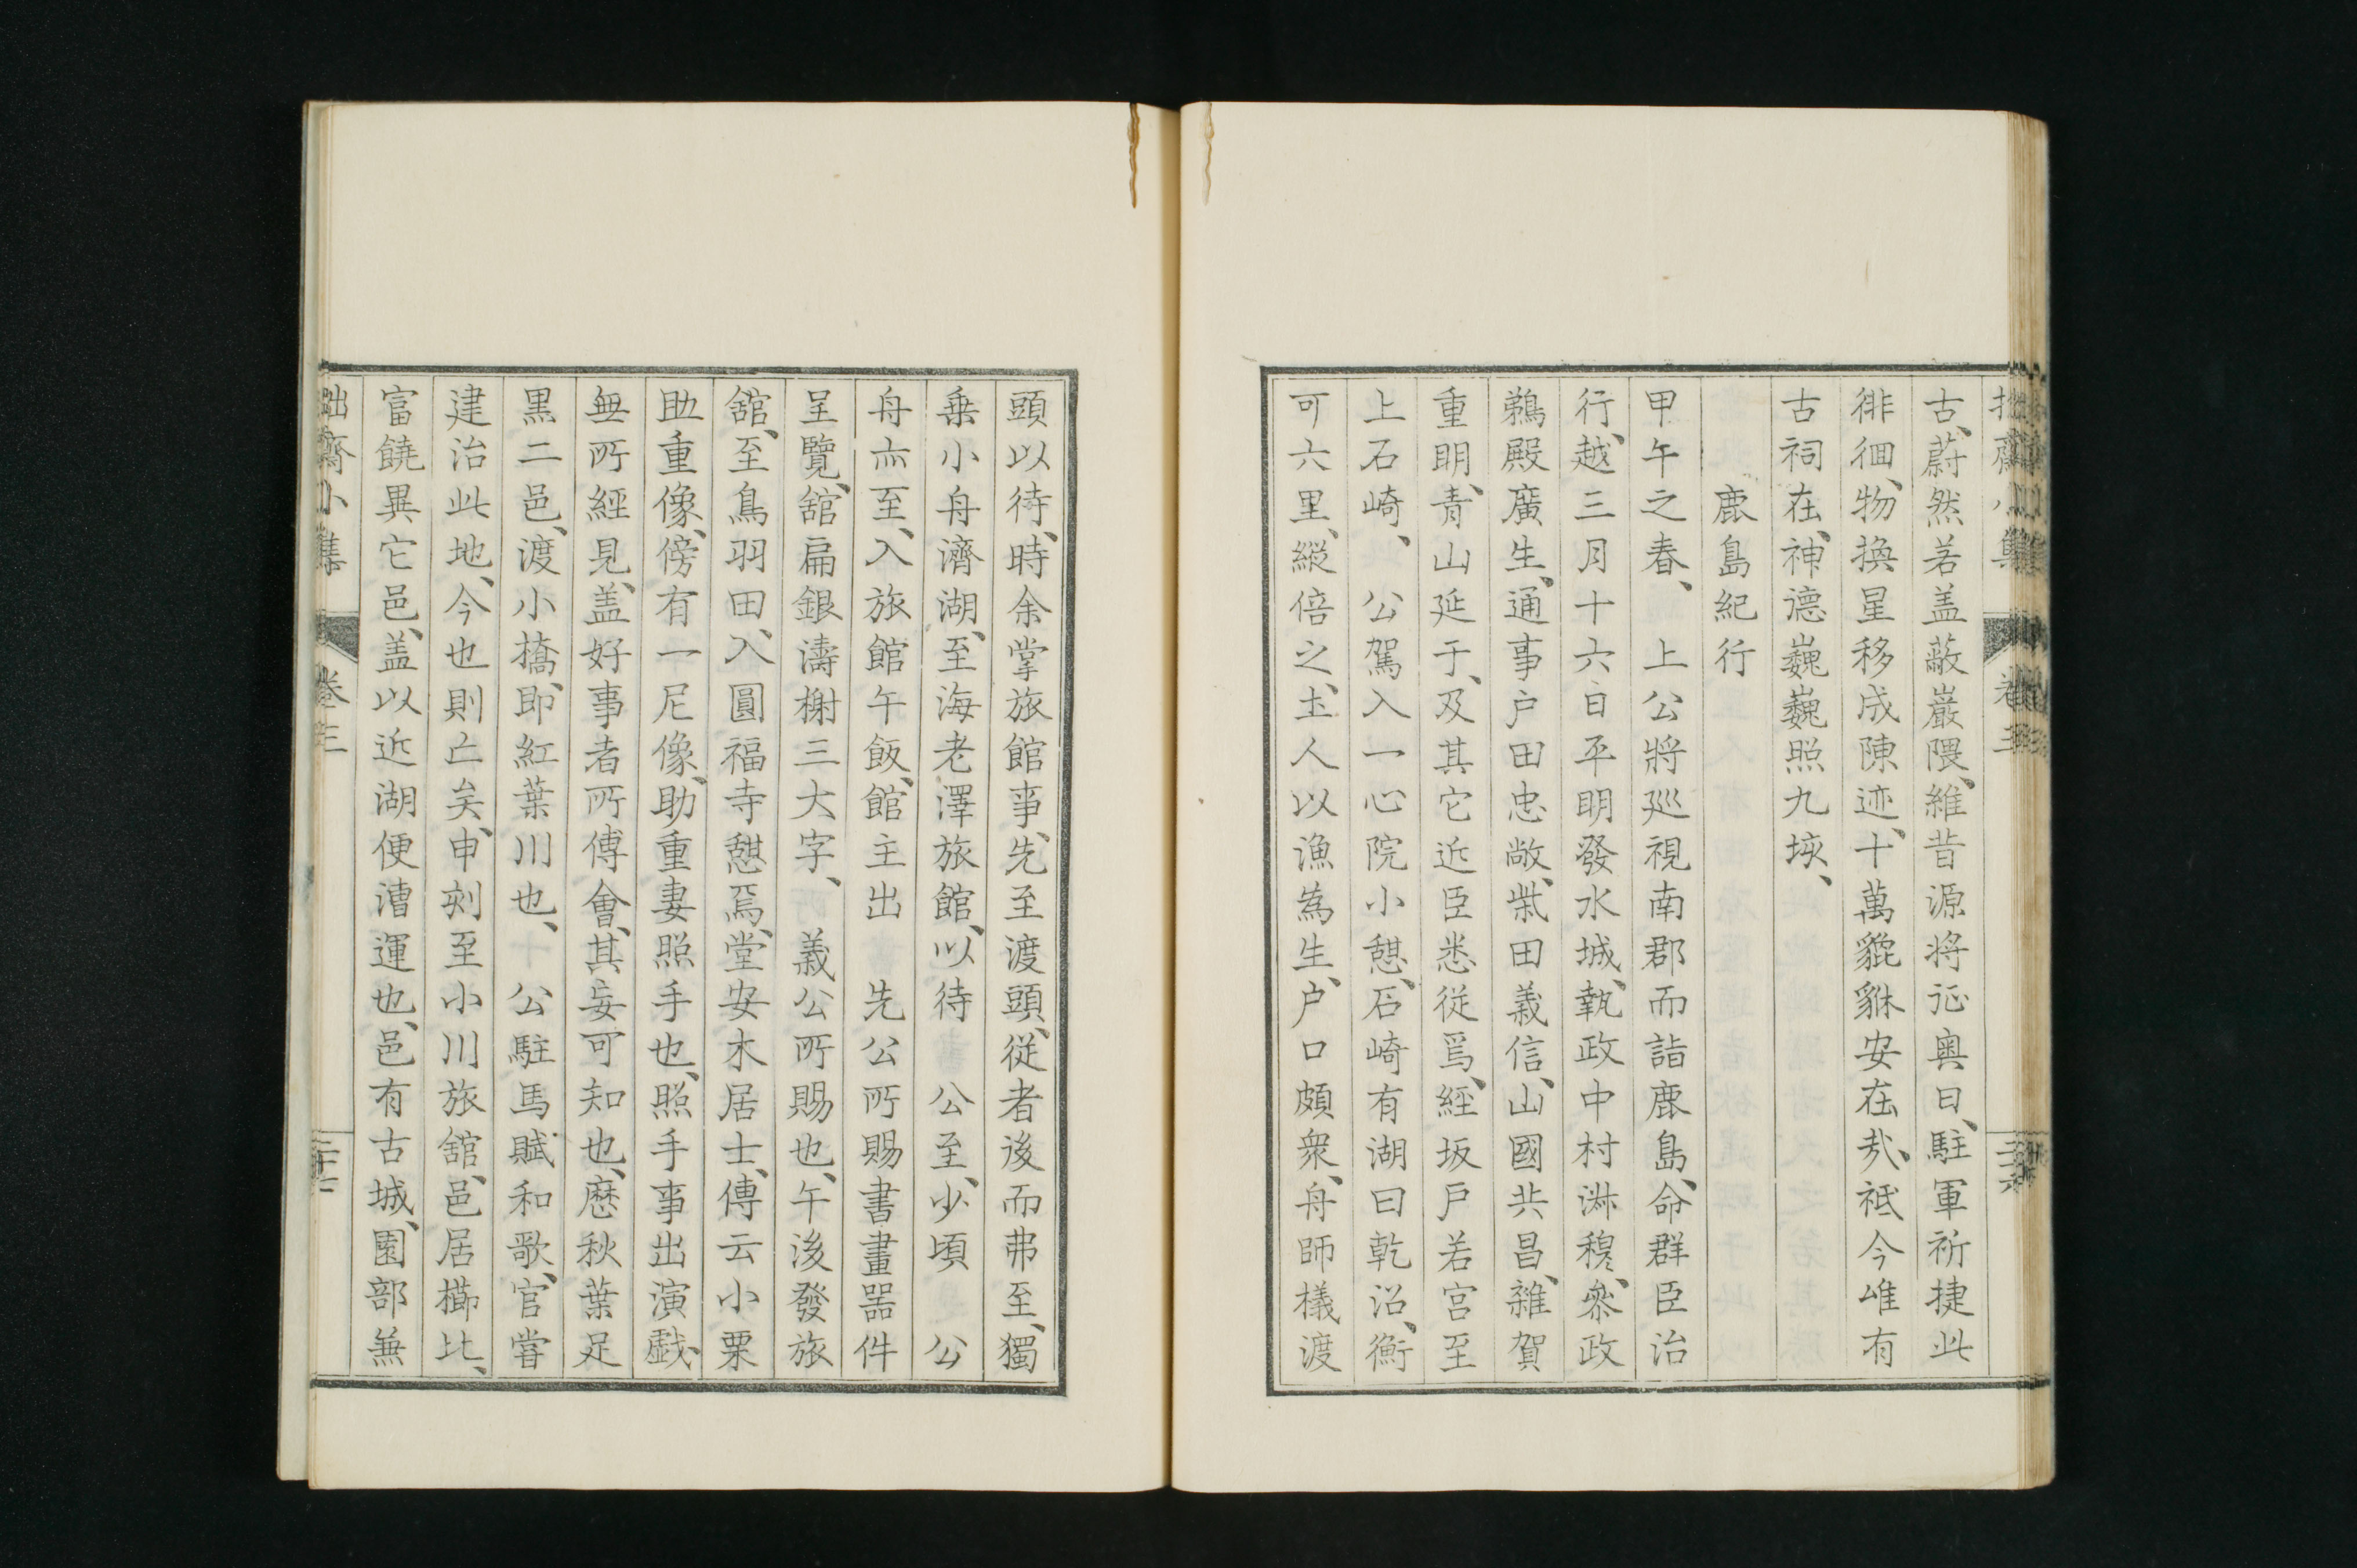 古、蔚然若盖蔽巖隈、維昔源將征奥日、駐軍祈捷此
徘徊、物換星移成陳迹、十萬貔貅安在哉、祗今唯有
古祠在、神德巍巍照九垓、
鹿島紀行
甲午之春、　上公將巡視南郡而詣鹿島、命群臣治
行、越三月十六日平明發水城、執政中村淋穆、參政
鵜殿廣生、通事户田忠敞、柴田義信、山國共昌、雜賀
重明、青山延于、及其它近臣悉從焉、經坂戸若宮至
上石崎、　公駕入一心院小憩、石崎有湖曰乾沼、衡
可六里、縱倍之、土人以漁爲生、户口頗衆、舟師檥渡
頭以待、時余掌旅館事、先至渡頭、從者後而弗至、獨
乗小舟濟湖、至海老澤旅館、以待　公至、少頃　公
舟亦至、入旅館午飯、館主出　先公所賜書畫噐件
呈覽、舘扁銀濤榭三大字、　義公所賜也、午後發旅
舘、至鳥羽田、入圓福寺憩焉、堂安木居士、傳云小栗
助重像、傍有一尼像、助重妻照手也、照手事出演戯、
無所經見、盖好事者所傅會、其妄可知也、歴秋葉足
黒二邑、渡小橋、即紅葉川也、　公駐馬賦和歌、官嘗
建治此地、今也則亡矣、申刻至小川旅舘、邑居櫛比、
富饒異它邑、盖以近湖便漕運也、邑有古城、園部兼
拙齋小集　卷三